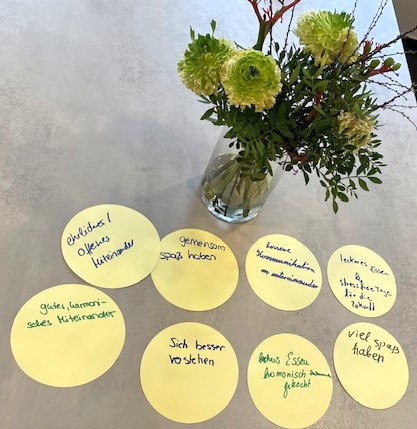 ehrliches/
offenes
Miteinander
gemeinsam
spaß haben
bessere
Kommunikation
miteinander
leckeres Essen
&
stressfreie Tage
für die
Zukunft
gutes, harmoni-
sches Miteinander
Sich besser
verstehen
Essen
harmonisch
gekocht
viel spaß
haben